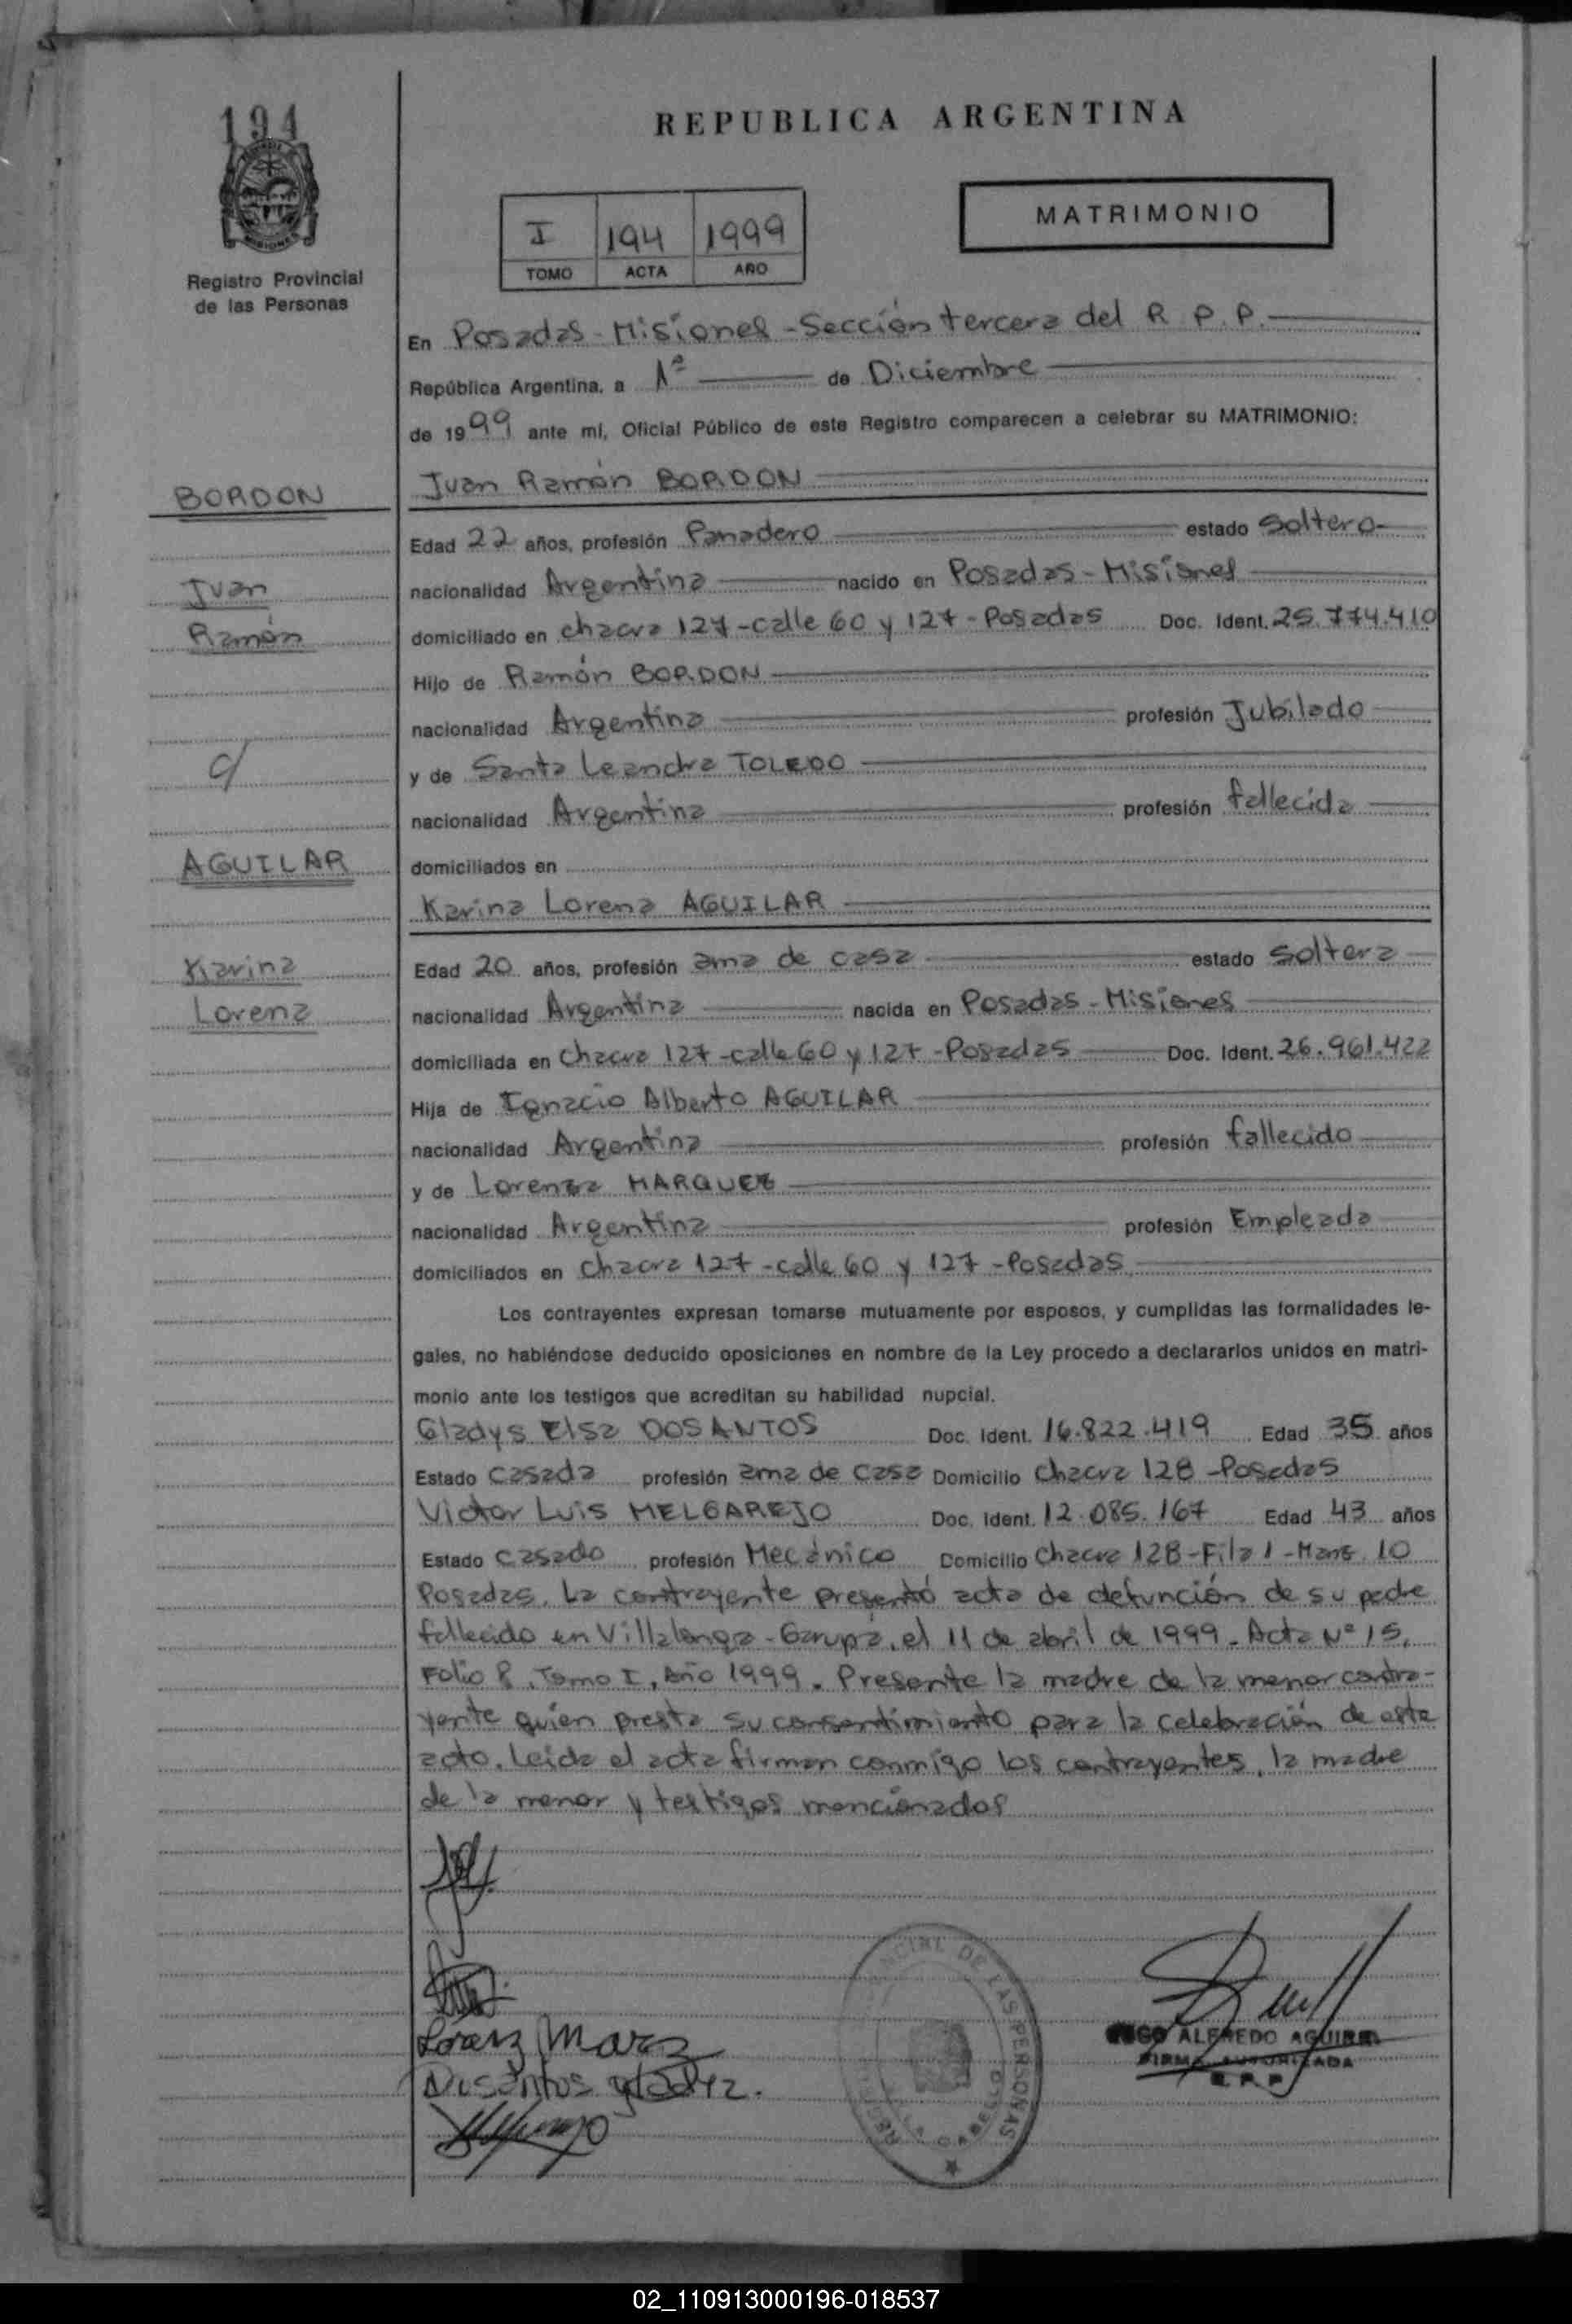 194
REPUBLICA ARGENTINA
MATRIMONIO
I 194 1999
TOMO ACTA AÑO
Registro Provincial
de las Personas
En Posadas - Misiones - Sección tercera del R. P. P.
República Argentina, a 1º de Diciembre
de 1999 ante mí, Oficial Público de este Registro comparecen a celebrar su MATRIMONIO:
BORDON
Juan Ramón BORDON
Edad 22 años, profesión Panadero estado Soltero
Juan
nacionalidad Argentina nacido en Posadas - Misiones
Ramón
domiciliado en chacra 127 - calle 60 y 127 - Posadas Doc. Ident. 25.774.410
Hijo de Ramón BORDON
nacionalidad Argentina profesión Jubilado
c/
y de Santa Leandra TOLEDO
nacionalidad Argentina profesión fallecida
AGUILAR
domiciliados en
Karina Lorena AGUILAR
Karina
Edad 20 años, profesión ama de casa estado soltera
Lorena
nacionalidad Argentina nacida en Posadas - Misiones
domiciliada en Chacra 127 - calle 60 y 127 - Posadas Doc. Ident. 26.961.422
Hija de Ignacio Alberto AGUILAR
nacionalidad Argentina profesión fallecido
y de Lorenza MARQUEZ
nacionalidad Argentina profesión Empleada
domiciliados en chacra 127 - calle 60 y 127 - Posadas
Los contrayentes expresan tomarse mutuamente por esposos, y cumplidas las formalidades le-
gales, no habiéndose deducido oposiciones en nombre de la Ley procedo a declararlos unidos en matri-
monio ante los testigos que acreditan su habilidad nupcial.
Gladys Elsa DOSANTOS Doc. Ident. 16.822.419 Edad 35 años
Estado Casada profesión ama de casa Domicilio Chacra 128 - Posadas
Victor Luis MELGAREJO Doc. Ident. 12.085.167 Edad 43 años
Estado casado profesión Mecánico Domicilio Chacra 128 - Fila 1 - Manz. 10
Posadas. La contrayente presentó acta de defunción de su padre
fallecido en Villalonga - Garupá, el 11 de abril de 1999. Acta Nº 15,
Folio 8, Tomo I, Año 1999. Presente la madre de la menor contra-
yente quién presta su consentimiento para la celebración de este
acto. Leída el acta firman conmigo los contrayentes, la madre
de la menor y testigos mencionados
Dosantos
ALFREDO AGUIRRE
FIRMA AUTORIZADA
R. P. P.
DE LAS PERSONAS
02_110913000196-018537